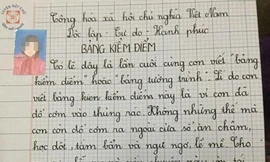 Cộng hòa xã hội chủ nghĩa Việt Nam
Độc lập - Tự do - Hạnh phúc
BẢNG KIỂM ĐIỂM
Có lẽ đây là lần cuối cùng con viết "bảng
kiểm điểm" hoặc "bảng tường trình". Lí do con
viết bảng kiểm điểm này là vì con đã
đổ cơm vào thùng rác. Không những thế mà
con còn đổ cơm ra ngoài cửa sổ, ăn chậm,
học dốt, tâm bẩn và ngu ngơ, lề mề. Cho